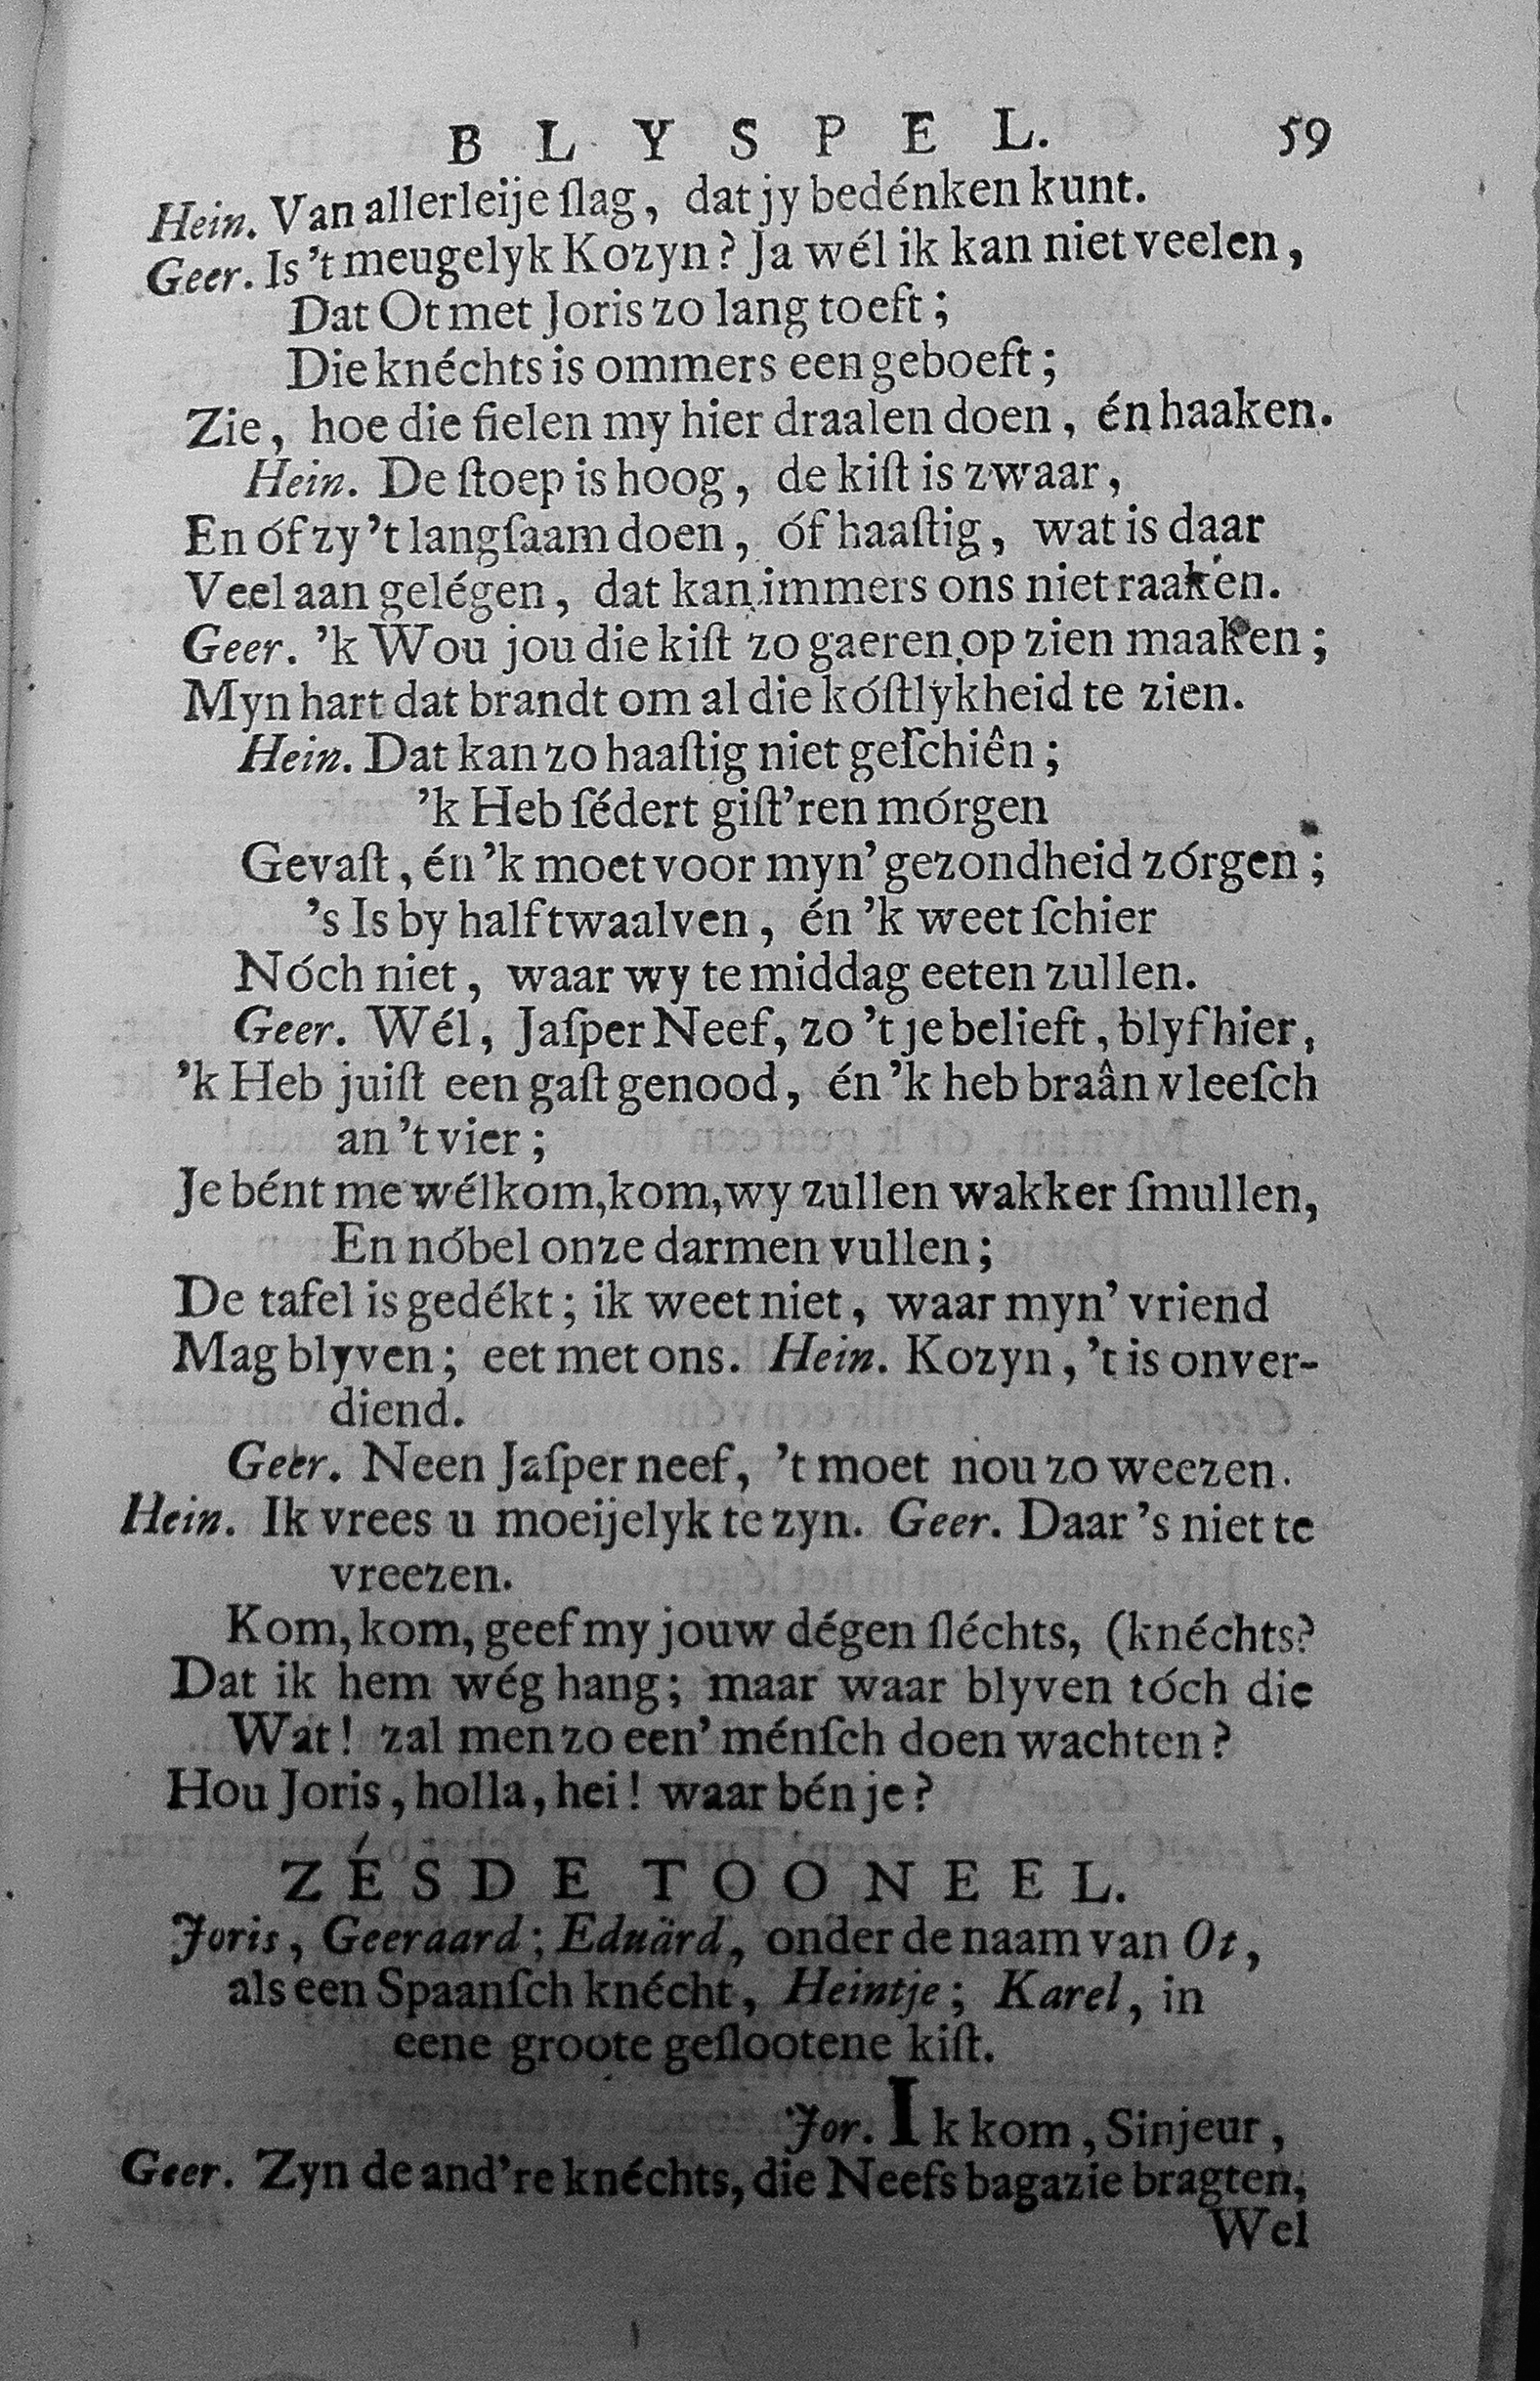 BLYSPEL. 59
Hein. Van allerleije ſlag, dat jy bedénken kunt.
Geer. Is 't meugelyk Kozyn? Ja wél ik kan niet veelen,
Dat Ot met Joris zo lang toeft;
Die knéchts is ommers een geboeft;
Zie, hoe die fielen my hier draalen doen, én haaken.
Hein. De ſtoep is hoog, de kiſt is zwaar,
En óf zy 't langſaam doen, óf haaſtig, wat is daar
Veel aan gelégen, dat kan immers ons niet raaken.
Geer. 'k Wou jou die kiſt zo gaeren op zien maaken;
Myn hart dat brandt om al die kóſtlykheid te zien.
Hein. Dat kan zo haaſtig niet geſchiên;
'k Heb ſédert giſt'ren mórgen
Gevaſt, én 'k moet voor myn' gezondheid zórgen;
's Is by half twaalven, én 'k weet ſchier
Nóch niet, waar wy te middag eeten zullen.
Geer. Wél, Jaſper Neef, zo 't je belieft, blyf hier,
'k Heb juiſt een gaſt genood, én 'k heb braân vleeſch
an 't vier;
Je bént me wélkom, kom, wy zullen wakker ſmullen,
En nóbel onze darmen vullen;
De tafel is gedékt; ik weet niet, waar myn' vriend
Mag blyven; eet met ons. Hein. Kozyn, 't is onver-
diend.
Geer. Neen Jaſper neef, 't moet nou zo weezen.
Hein. Ik vrees u moeijelyk te zyn. Geer. Daar 's niet te
vreezen.
Kom, kom, geef my jouw dégen ſléchts, (knéchts?
Dat ik hem wég hang; maar waar blyven tóch die
Wat! zal men zo een' ménſch doen wachten?
Hou Joris, holla, hei! waar bén je?
ZÉSDE TOONEEL.
Joris, Geeraard; Eduärd, onder de naam van Ot,
als een Spaanſch knécht, Heintje; Karel, in
eene groote geſlootene kiſt.
Jor. Ik kom, Sinjeur,
Geer. Zyn de and're knéchts, die Neefs bagazie bragten,
Wel